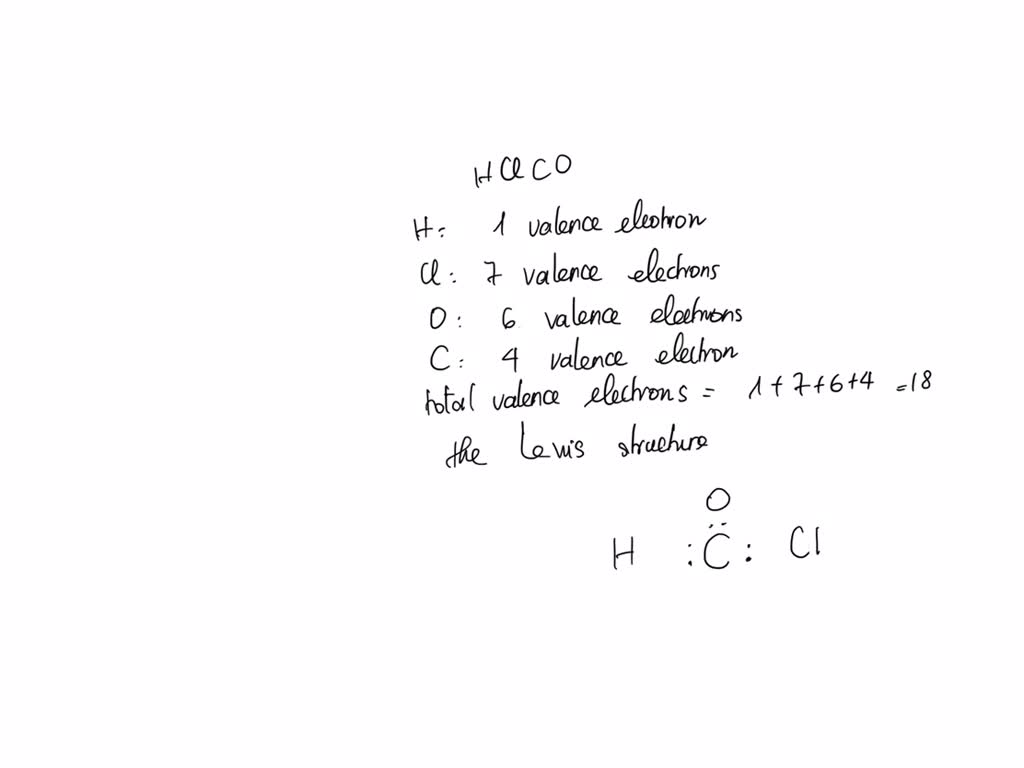 HClCO
H: 1 valence electron
Cl: 7 valence electrons
O: 6 valence electrons
C: 4 valence electron
total valence electrons = 1+7+6+4 =18
the Lewis structure
O
H :C̈: Cl